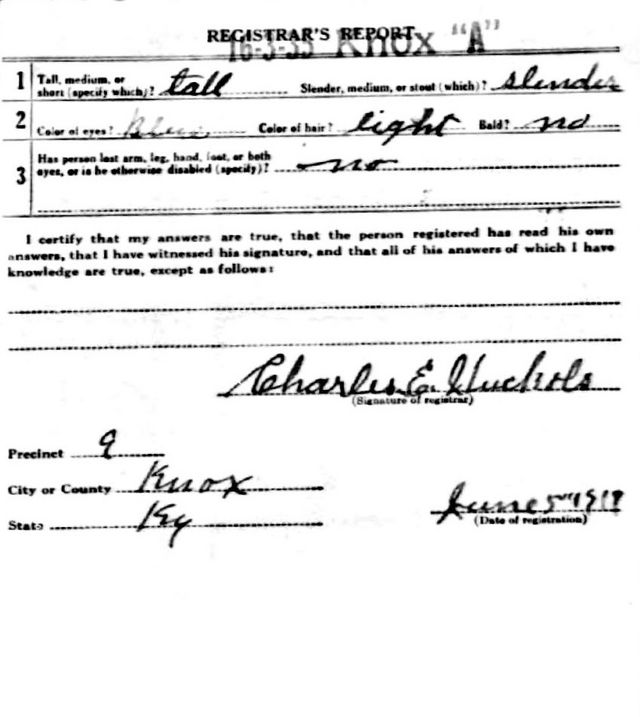 REGISTRAR'S REPORT
16-3-35 Knox "A"
1 Tall, medium, or short (specify which)? tall Slender, medium, or stout (which)? slender
2 Color of eyes? Blue Color of hair? light Bald? no
3 Has person lost arm, leg, hand, foot, or both eyes, or is he otherwise disabled (specify)? no
I certify that my answers are true, that the person registered has read his own
answers, that I have witnessed his signature, and that all of his answers of which I have
knowledge are true, except as follows:
Charles E. Nuckols
(Signature of registrar)
Precinct 9
City or County Knox
State Ky
June 5" 1917
(Date of registration)